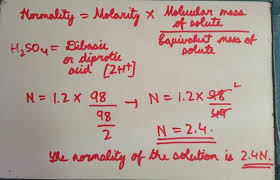 Normality = Molarity × Molecular mass of solute / Equivalent mass of solute
H₂SO₄ = Dibasic
or diprotic
acid [2H⁺]
N = 1.2 × 98 / (98/2) → N = 1.2 × 98 2 / 49
N = 2.4.
The normality of the solution is 2.4N.